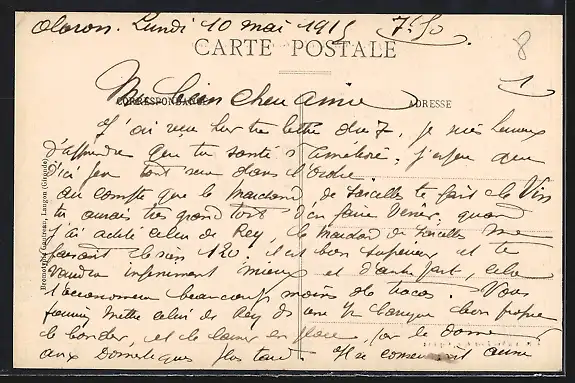 Oloron. Lundi 10 mai 1915 7h50
CARTE POSTALE
8
1
Ma bien chère amie
CORRESPONDANCE
ADRESSE
J'ai reçu hier ta lettre du 7, je suis heureux
d'apprendre que ta santé s'améliore. j'espère que
d'ici peu tout sera dans l'ordre.
au compte que le marchand de Sarcelles te fait le Vin
tu aurais très grand tort d'en faire venir, quand
j'ai acheté celui de Rey, le marchand de Sarcelles me
faisait le sien 120. il est bien supérieur et te
vaudra infiniment mieux et d'autre part, cela
t'occasionnera beaucoup moins de tracas. Vous
pourrez mettre celui de Rey de une barrique bien propre
le border, et le laisser en place, pour le donner
aux domestiques plus tard. Il se conservera
Bromotypie Gautreau, Langon (Gironde)